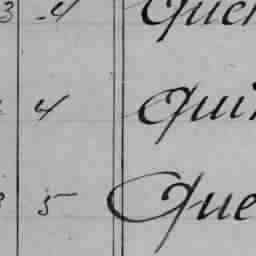 3 4 Quer
4 Quin
3 5 Que